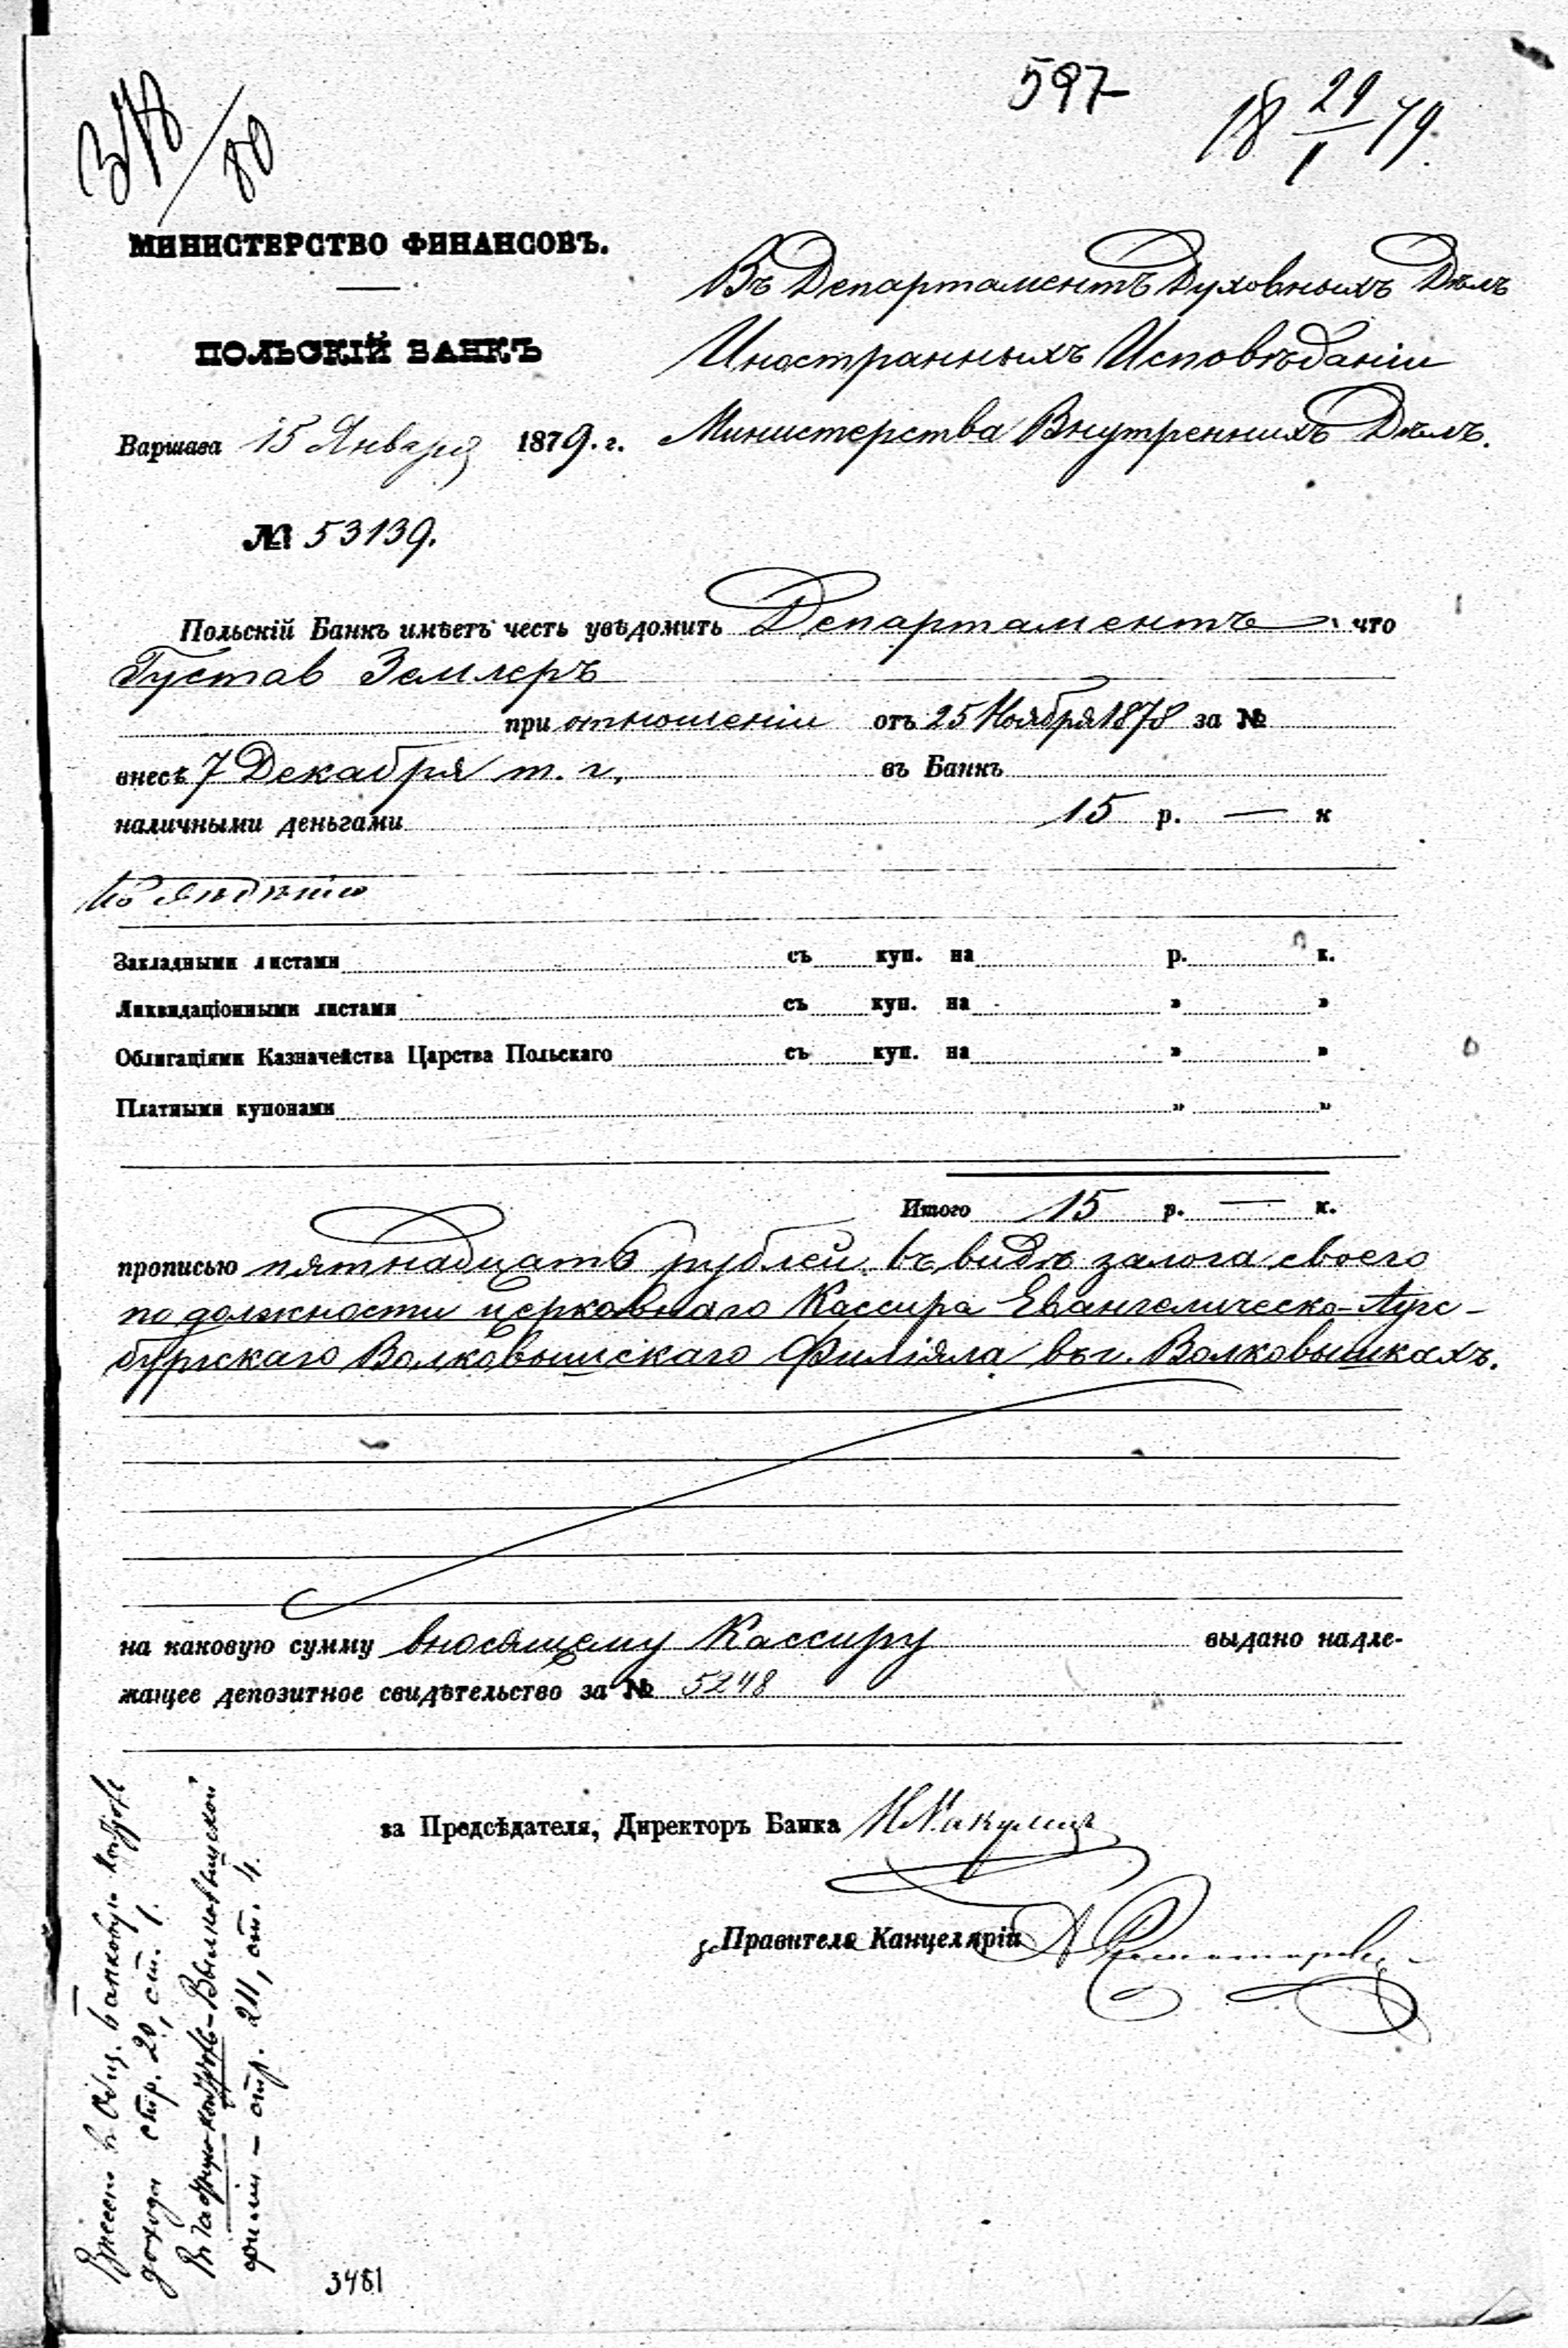 597
18 29/1 79.
МИНИСТЕРСТВО ФИНАНСОВЪ.
ПОЛЬСКІЙ БАНКЪ
Варшава 15 Января 1879. г.
№ 53139.
Въ Департаментъ Духовныхъ Дѣлъ
Иностранныхъ Исповѣданіи
Министерства Внутреннихъ Дѣлъ.
Польскій Банкъ имѣетъ честь увѣдомить Департаментъ что
Густав Землеръ
при отношеніи отъ 25 Ноября 1878 за №
внесъ 7 Декабря т. г. въ Банкъ
наличными деньгами 15 р. — к
Закладными листами съ куп. на р. к.
Ликвидаціонными листами съ куп. на „ „
Облигаціями Казначейства Царства Польскаго съ куп. на „ „
Платными купонами „ „
Итого 15 р. — к.
прописью пятнадцать рублей въ видѣ залога своего
по должности церковнаго Кассира Евангелическо-Аугс-
бургскаго Волковышскаго Филіяла въ г. Волковышкахъ.
на каковую сумму вносящему Кассиру выдано надле-
жащее депозитное свидѣтельство за № 5248
за Предсѣдателя, Директоръ Банка
Правителя Канцеляріи
стр. 20, ст. 1.
стр. 211, ст. 4.
3481